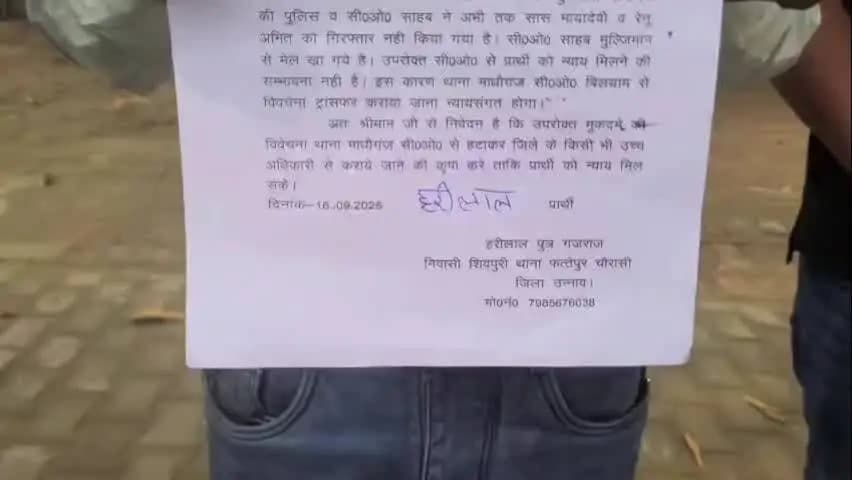 की पुलिस व सी0ओ0 साहब ने अभी तक सास मायादेवी व रेनू
अमित को गिरफ्तार नही किया गया है। सी0ओ0 साहब मुल्जिमान
से मेल खा गये है। उपरोक्त सी0ओ0 से प्रार्थी को न्याय मिलने की
सम्भावना नही है। इस कारण थाना माधौगंज सी0ओ0 बिलग्राम से
विवेचना ट्रांसफर कराया जाना न्यायसंगत होगा।
अतः श्रीमान जी से निवेदन है कि उपरोक्त मुकदमें की
विवेचना थाना माधौगंज सी0ओ0 से हटाकर जिले के किसी भी उच्च
अधिकारी से कराये जाने की कृपा करे ताकि प्रार्थी को न्याय मिल
सके।
दिनांक–16.09.2025 हरीलाल प्रार्थी
हरीलाल पुत्र गजराज
निवासी शिवपुरी थाना फत्तेपुर चौरासी
जिला उन्नाव।
मो0नं0 7985676038